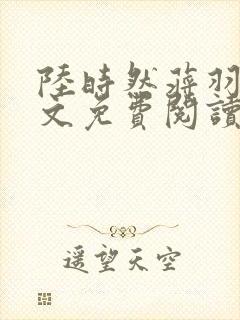 陸時然蒋羽
文免費閱讀
遥望天空